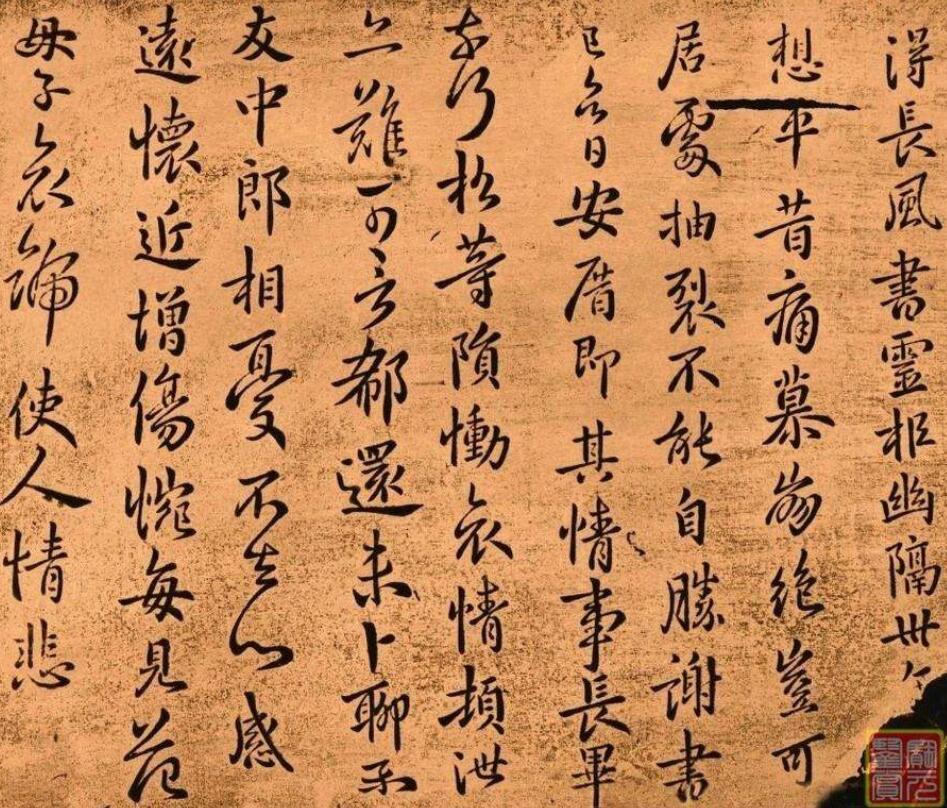 得長風書靈柩幽隔卅
想平昔痛慕崩絶豈可
居處抽裂不能自勝謝書
已日安厝即其情事長畢
行松等隕慟哀情頓泄
亦難可言都還未卜聊示
友中郎相憂不去心感
遠懷近增傷惋每見范
母子哀號使人情悲